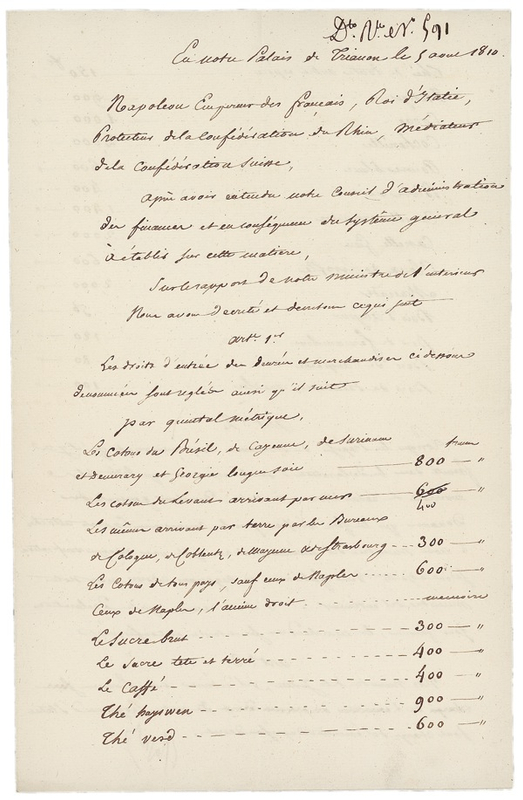 Dto. Vte. et V. 591
En notre Palais de Trianon le 5 aout 1810.
Napoleon Empereur des français, Roi d'Italie,
Protecteur de la Confédération du Rhin, Médiateur
de la Confédération Suisse,
Après avoir entendu notre Conseil d'administration
des finances et en conséquence du Système general
à établir sur cette matiere,
Sur le rapport de notre ministre de l'interieur
Nous avons decreté et decretons ce qui suit
art. 1er
Les droits d'entrée des denrées et marchandises ci dessous
denommées sont reglés ainsi qu'il suit
par quintal métrique,
Les cotons du Brésil, de Cayenne, de Surinam
et Demerary et Georgie longue soie 800 — "
Les cotons du Levant arrivant par mer 600 — "
400
Les mêmes arrivant par terre par les Bureaux
de Cologne, de Coblentz, de Mayence et de Strasbourg 300 — "
Les Cotons de tous pays, sauf ceux de Naples 600 "
Ceux de Naples, l'ancien droit memoire
Le Sucre brut 300 — "
Le Sucre tete et terré 400 — "
Le Caffé 400 — "
Thé hayswen 900 — "
Thé verd 600 — "